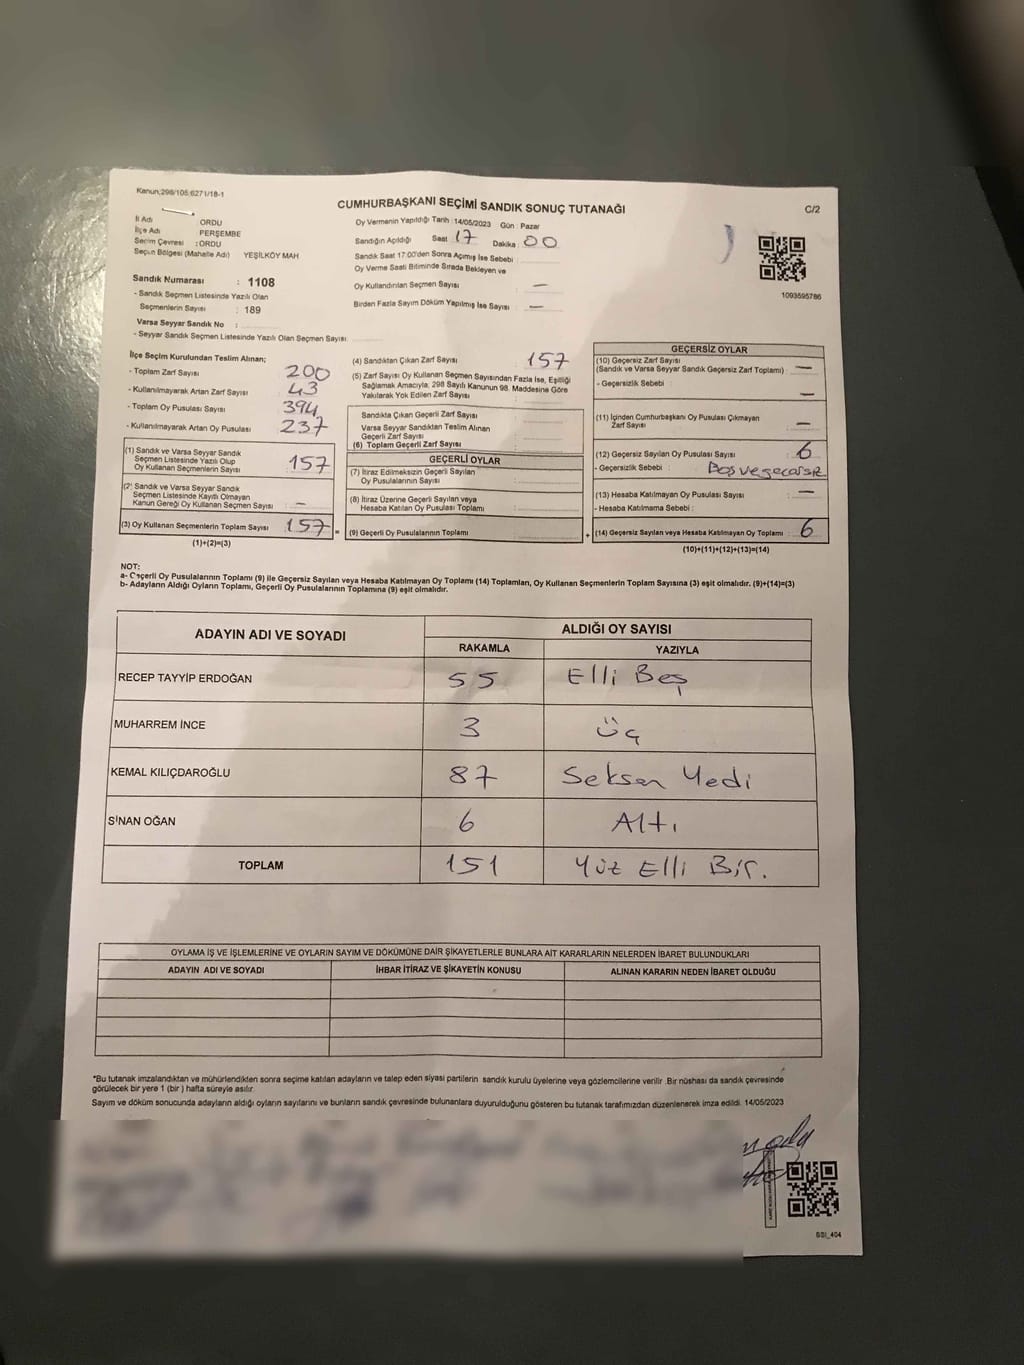 Kanun;298/105;6271/18-1
CUMHURBAŞKANI SEÇİMİ SANDIK SONUÇ TUTANAĞI
C/2
İl Adı ORDU
İlçe Adı PERŞEMBE
Seçim Çevresi : ORDU
Seçim Bölgesi (Mahalle Adı) YEŞİLKÖY MAH
Sandık Numarası : 1108
- Sandık Seçmen Listesinde Yazılı Olan
Seçmenlerin Sayısı : 189
Varsa Seyyar Sandık No :
- Seyyar Sandık Seçmen Listesinde Yazılı Olan Seçmen Sayısı
Oy Vermenin Yapıldığı Tarih :14/05/2023 Gün : Pazar
Sandığın Açıldığı Saat 17 Dakika 00
Sandık Saat 17:00'den Sonra Açımış İse Sebebi :
Oy Verme Saati Bitiminde Sırada Bekleyen ve
Oy Kullandırılan Seçmen Sayısı : —
Birden Fazla Sayım Döküm Yapılmış İse Sayısı : —
1093595786
İlçe Seçim Kurulundan Teslim Alınan;
- Toplam Zarf Sayısı 200
- Kullanılmayarak Artan Zarf Sayısı 43
- Toplam Oy Pusulası Sayısı 394
- Kullanılmayarak Artan Oy Pusulası 237
(1) Sandık ve Varsa Seyyar Sandık
Seçmen Listesinde Yazılı Olup
Oy Kullanan Seçmenlerin Sayısı 157
(2) Sandık ve Varsa Seyyar Sandık
Seçmen Listesinde Kayıtlı Olmayan
Kanun Gereği Oy Kullanan Seçmen Sayısı —
(3) Oy Kullanan Seçmenlerin Toplam Sayısı 157 =
(1)+(2)=(3)
(4) Sandıktan Çıkan Zarf Sayısı 157
(5) Zarf Sayısı Oy Kullanan Seçmen Sayısından Fazla İse, Eşitliği
Sağlamak Amacıyla, 298 Sayılı Kanunun 98. Maddesine Göre
Yakılarak Yok Edilen Zarf Sayısı
Sandıkta Çıkan Geçerli Zarf Sayısı
Varsa Seyyar Sandıktan Teslim Alınan
Geçerli Zarf Sayısı
(6) Toplam Geçerli Zarf Sayısı
GEÇERLİ OYLAR
(7) İtiraz Edilmeksizin Geçerli Sayılan
Oy Pusulalarının Sayısı
(8) İtiraz Üzerine Geçerli Sayılan veya
Hesaba Katılan Oy Pusulası Toplamı
(9) Geçerli Oy Pusulalarının Toplamı +
GEÇERSİZ OYLAR
(10) Geçersiz Zarf Sayısı
(Sandık ve Varsa Seyyar Sandık Geçersiz Zarf Toplamı) : —
- Geçersizlik Sebebi : —
(11) İçinden Cumhurbaşkanı Oy Pusulası Çıkmayan
Zarf Sayısı : —
(12) Geçersiz Sayılan Oy Pusulası Sayısı : 6
- Geçersizlik Sebebi : Boş ve geçersiz
(13) Hesaba Katılmayan Oy Pusulası Sayısı : —
- Hesaba Katılmama Sebebi :
(14) Geçersiz Sayılan veya Hesaba Katılmayan Oy Toplamı : 6
(10)+(11)+(12)+(13)=(14)
NOT:
a- Geçerli Oy Pusulalarının Toplamı (9) ile Geçersiz Sayılan veya Hesaba Katılmayan Oy Toplamı (14) Toplamları, Oy Kullanan Seçmenlerin Toplam Sayısına (3) eşit olmalıdır. (9)+(14)=(3)
b- Adayların Aldığı Oyların Toplamı, Geçerli Oy Pusulalarının Toplamına (9) eşit olmalıdır.
ADAYIN ADI VE SOYADI
ALDIĞI OY SAYISI
RAKAMLA YAZIYLA
RECEP TAYYİP ERDOĞAN 55 Elli Beş
MUHARREM İNCE 3 üç
KEMAL KILIÇDAROĞLU 87 Seksen Yedi
SİNAN OĞAN 6 Altı
TOPLAM 151 Yüz Elli Bir.
OYLAMA İŞ VE İŞLEMLERİNE VE OYLARIN SAYIM VE DÖKÜMÜNE DAİR ŞİKAYETLERLE BUNLARA AİT KARARLARIN NELERDEN İBARET BULUNDUKLARI
ADAYIN ADI VE SOYADI İHBAR İTİRAZ VE ŞİKAYETİN KONUSU ALINAN KARARIN NEDEN İBARET OLDUĞU
*Bu tutanak imzalandıktan ve mühürlendikten sonra seçime katılan adayların ve talep eden siyasi partilerin sandık kurulu üyelerine veya gözlemcilerine verilir .Bir nüshası da sandık çevresinde
görülecek bir yere 1 (bir ) hafta süreyle asılır.
Sayım ve döküm sonucunda adayların aldığı oyların sayılarını ve bunların sandık çevresinde bulunanlara duyurulduğunu gösteren bu tutanak tarafımızdan düzenlenerek imza edildi. 14/05/2023